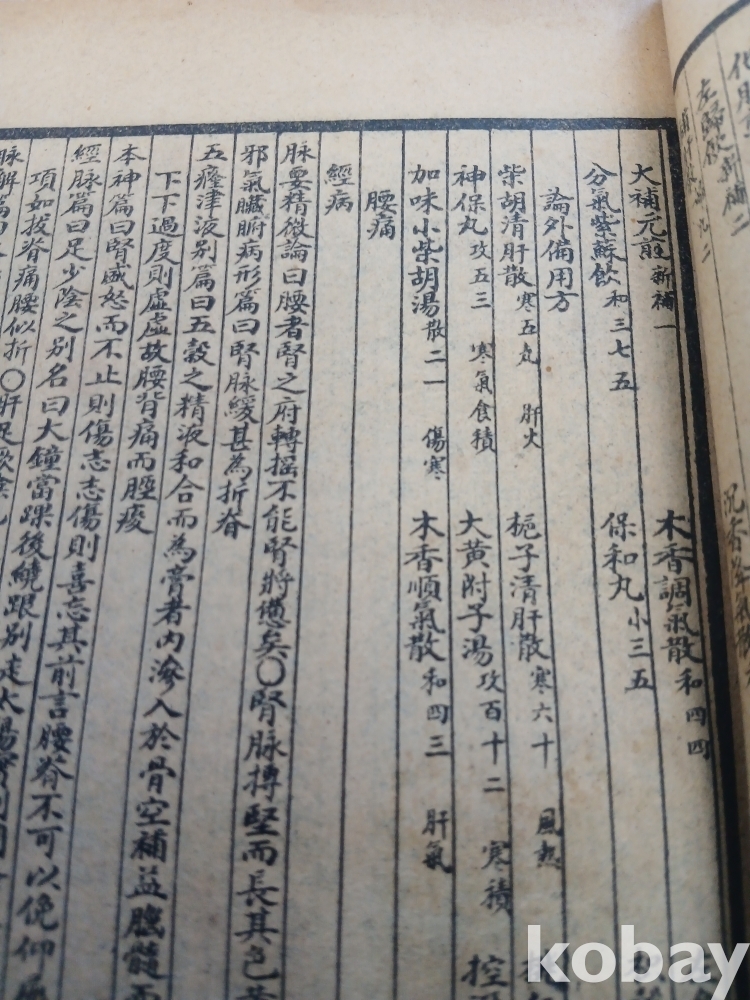 左歸飲 新補二
大補元煎 新補一 木香調氣散 和四四
分氣紫蘇飲 和三七五 保和丸 小三五
論外備用方
柴胡清肝散 寒五九 肝火 梔子清肝散 寒六十 風熱
神保丸 攻五三 寒氣食積 大黃附子湯 攻百十二 寒積
加味小柴胡湯 散二一 傷寒 木香順氣散 和四三 肝氣
腰痛
經病
脉要精微論曰腰者腎之府轉摇不能腎將憊矣○腎脉搏堅而長其色黃
邪氣臟腑病形篇曰腎脉緩甚為折脊
五癃津液別篇曰五穀之精液和合而為膏者內滲入於骨空補益腦髓而
下下過度則虛虛故腰背痛而脛痠
本神篇曰腎盛怒而不止則傷志志傷則喜忘其前言腰脊不可以俛仰
經脉篇曰足少陰之別名曰大鐘當踝後繞跟別走太陽實則
項如拔脊痛腰似折○肝足
kobay